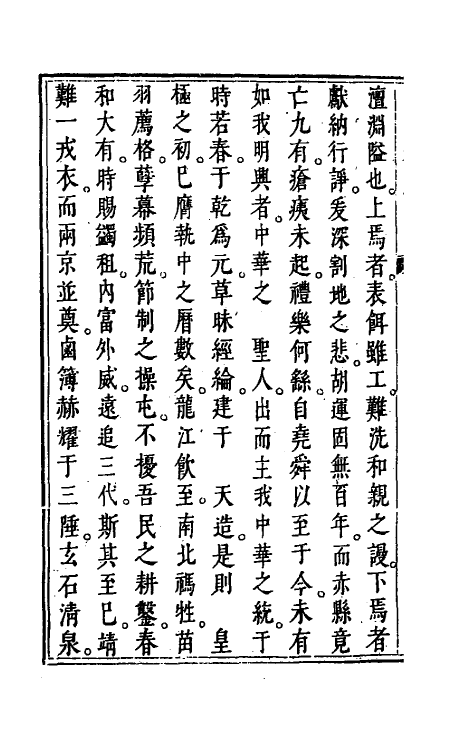 澶淵隘也。上焉者。表餌雖工。難洗和親之謾。下焉者
獻納行諍。爰深割地之悲。胡運固無百年。而赤縣竟
亡九有。瘡痍未起。禮樂何繇。自堯舜以至于今。未有
如我明興者。中華之　聖人。出而主我中華之統。于
時若春。于乾爲元。草昧經綸。建于　天造。是則　皇
極之初。已膺執中之曆數矣。龍江飲至。南北禡牲。苗
羽薦格。孽幕頻荒。節制之操。屯不擾吾民之耕鑿。春
和大有。時賜蠲租。內富外威。遠追三代。斯其至已。靖
難一戎衣。而兩京並奠。鹵簿赫耀于三陲。玄石清泉。